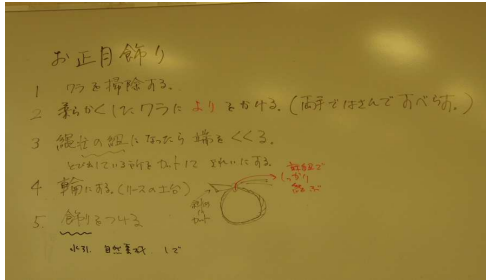 お正月飾り
1 ワラを掃除する。
2 柔らかくしたワラによりをかける。(両手ではさんですべらす。)
3 になったら端をくくる。
とびだしている所をカットしてきれいにする。
4 輪にする。(リースの土台)
しっかり
5. 飾りをつける
水引. 自然素材 しで